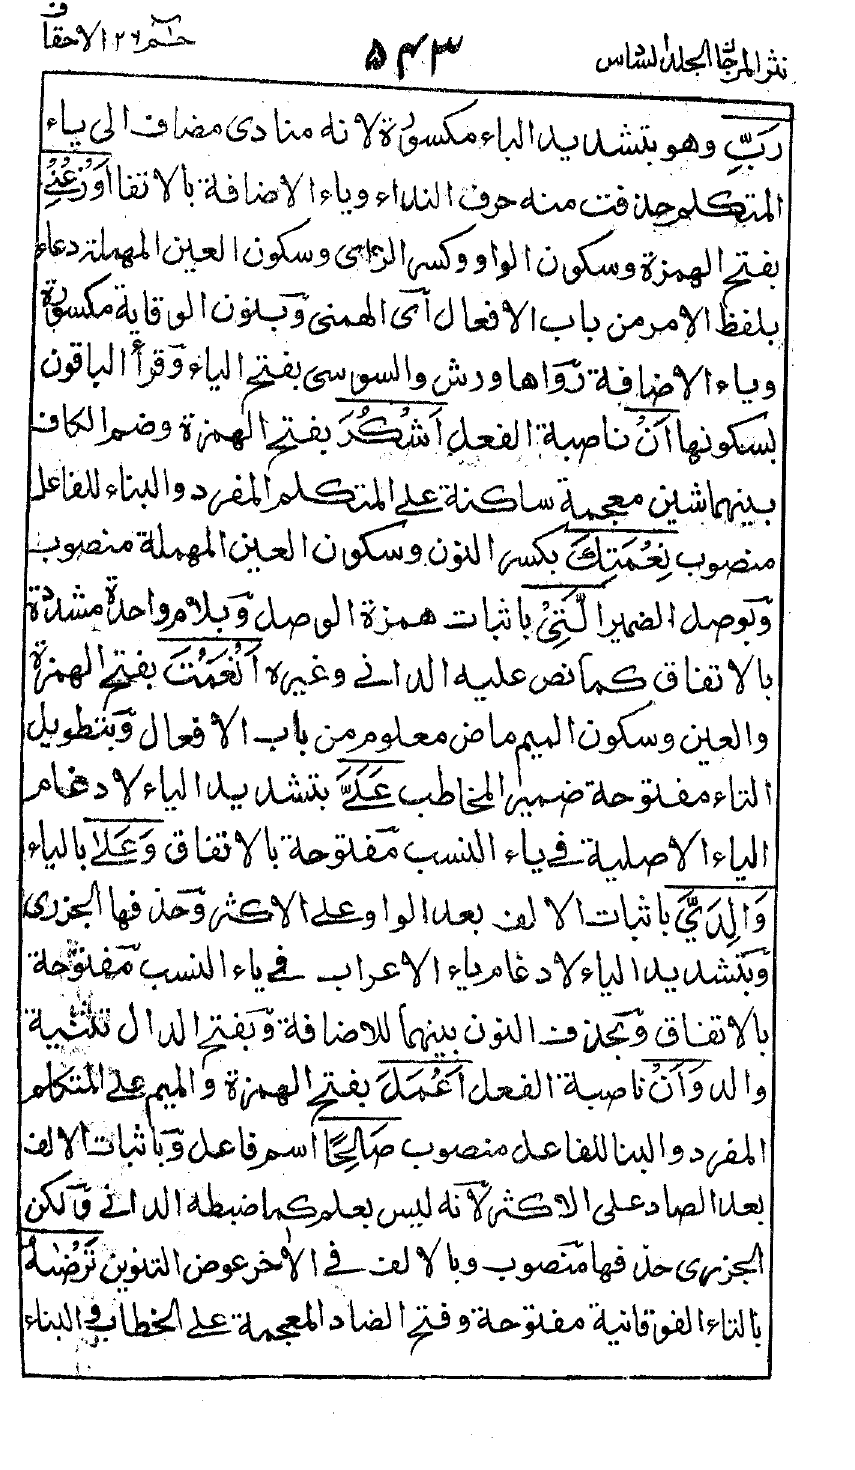 نثر المرجان المجلد السادس
۵۴۳
حٰم ۲۶ الاحقاف
رَبِّ وهو بتشديد الباء مكسورة لانه منادى مضاف الى ياء
المتكلم حذفت منه حرف النداء وياء الاضافة بالاتفاق اَوْزِعْنِىْ
بفتح الهمزة وسكون الواو وكسر الزاى وسكون العين المهملة دعاء
بلفظ الامر من باب الافعال اى الهمنى وبنون الوقاية مكسورة
وياء الاضافة رواها ورش والسوسى بفتح الياء وقرأ الباقون
بسكونها اَنْ ناصبة الفعل اَشْكُرَ بفتح الهمزة وضم الكاف
بينهما شين معجمة ساكنة على المتكلم المفرد والبناء للفاعل
منصوب نِعْمَتِكَ بكسر النون وسكون العين المهملة منصوب
وبوصل الضمير الَّتِىْ باثبات همزة الوصل وبلام واحدة مشددة
بالاتفاق كما نص عليه الدانى وغيره اَنْعَمْتَ بفتح الهمزة
والعين وسكون الميم ماض معلوم من باب الافعال وبتطويل
التاء مفتوحة ضمير المخاطب عَلَىَّ بتشديد الياء لادغام
الياء الاصلية فى ياء النسب مفتوحة بالاتفاق وَعَلٰى بالياء
وَالِدَىَّ باثبات الالف بعد الواو على الاكثر وحذفها الجزرى
وبتشديد الياء لادغام ياء الاعراب فى ياء النسب مفتوحة
بالاتفاق وبحذف النون بينهما للاضافة وبفتح الدال تثنية
والد وَاَنْ ناصبة الفعل اَعْمَلَ بفتح الهمزة والميم على المتكلم
المفرد والبنا للفاعل منصوب صَالِحًا اسم فاعل وباثبات الالف
بعد الصاد على الاكثر لانه ليس بعلم كما ضبطه الدانى ولكن
الجزرى حذفها منصوب وبالالف فى الاٰخر عوض التنوين تَرْضٰىهُ
بالتاء الفوقانية مفتوحة وفتح الضاد المعجمة على الخطاب والبناء